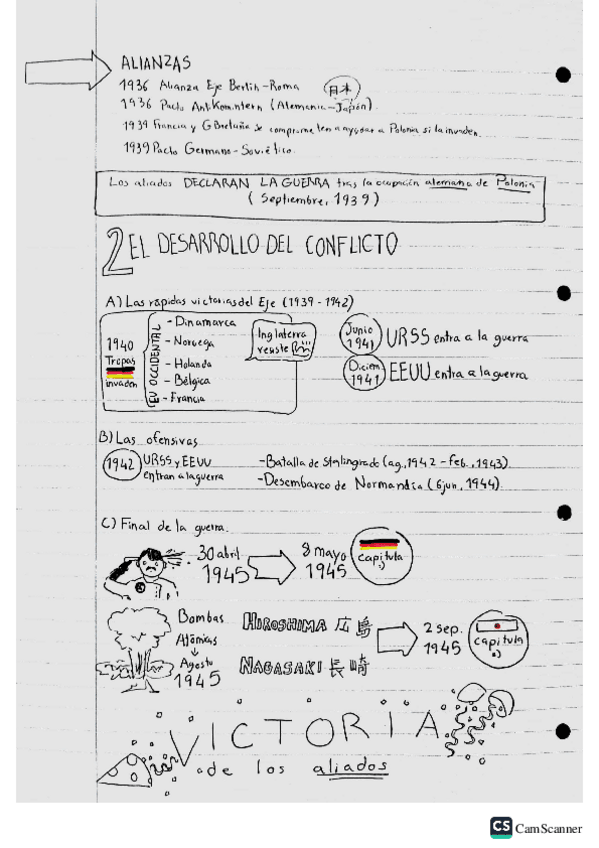 ALIANZAS
1936 Alianza Eje Berlín-Roma
日本
1936 Pacto AntiKomintern (Alemania-Japón).
1939 Francia y GBretaña se comprometen a ayudar a Polonia si la invaden.
1939 Pacto Germano-Soviético.
Los aliados DECLARAN LA GUERRA tras la ocupación alemana de Polonia
(Septiembre, 1939)
2 EL DESARROLLO DEL CONFLICTO
A) Las rápidas victorias del Eje (1939-1942)
1940
Tropas
invaden
EU OCCIDENTAL
- Dinamarca
- Noruega
- Holanda
- Bélgica
- Francia
Inglaterra
resiste
Junio
1941
URSS entra a la guerra
Diciem
1941
EEUU entra a la guerra
B) Las ofensivas
1942
URSS y EEUU
entran a la guerra
-Batalla de Stalingrado (ag., 1942 - feb., 1943).
-Desembarco de Normandía (6 jun, 1944).
C) Final de la guerra.
30 abril
1945
8 mayo
1945
capitula
:)
Bombas
Atómicas
Agosto
1945
HIROSHIMA 広島
NAGASAKI 長崎
2 sep.
1945
capitula
:)
VICTORIA
de los aliados
CS CamScanner